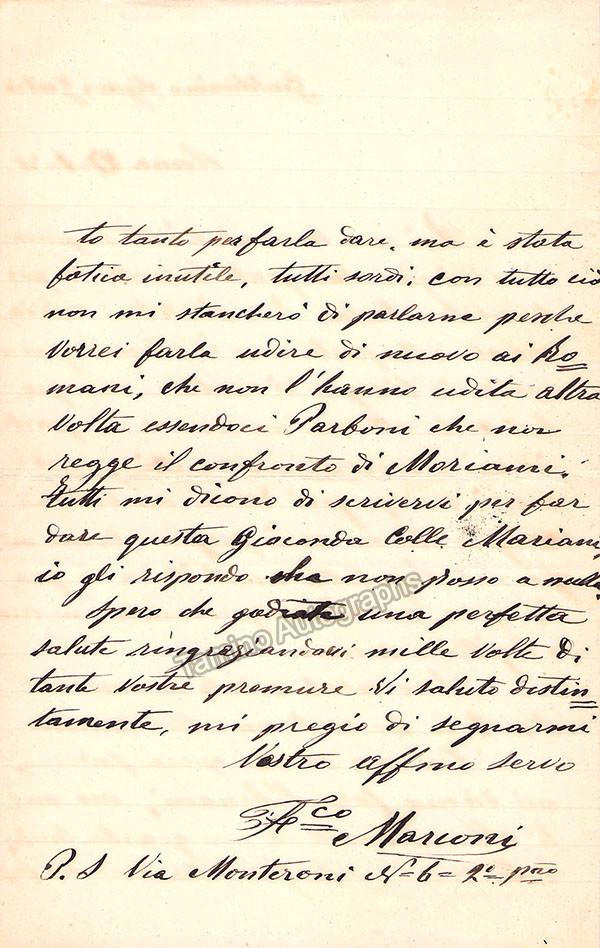 to tanto per farla dare, ma è stata
fatica inutile, tutti sordi; con tutto ciò
non mi stancherò di parlarne perche
vorrei farla udire di nuovo ai Ro=
mani, che non l'hanno udita altra
volta essendoci Parboni che non
regge il confronto di Moriami.
Tutti mi dicono di scrivervi per far
dare questa Gioconda Colle Mariani,
io gli rispondo che non posso a nulla.
Spero che godiate una perfetta
salute ringraziandovi mille volte di
tante vostre premure Vi saluto distin=
tamente, mi pregio di segnarmi
Vostro affmo servo
Fco Marconi
P. S Via Monteroni N= 6= 2o pno
Tamino Autographs